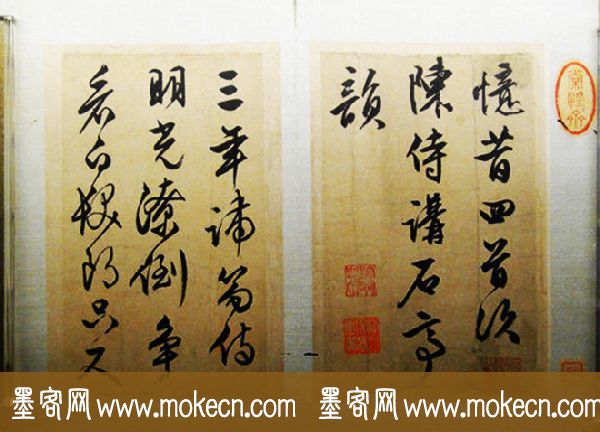 憶昔四首次
陳侍講石亭
韻
三年端笏侍
明光潦倒争
看白髮郎只
墨客网 www.mokecn.com 墨客网 www.mokecn.com